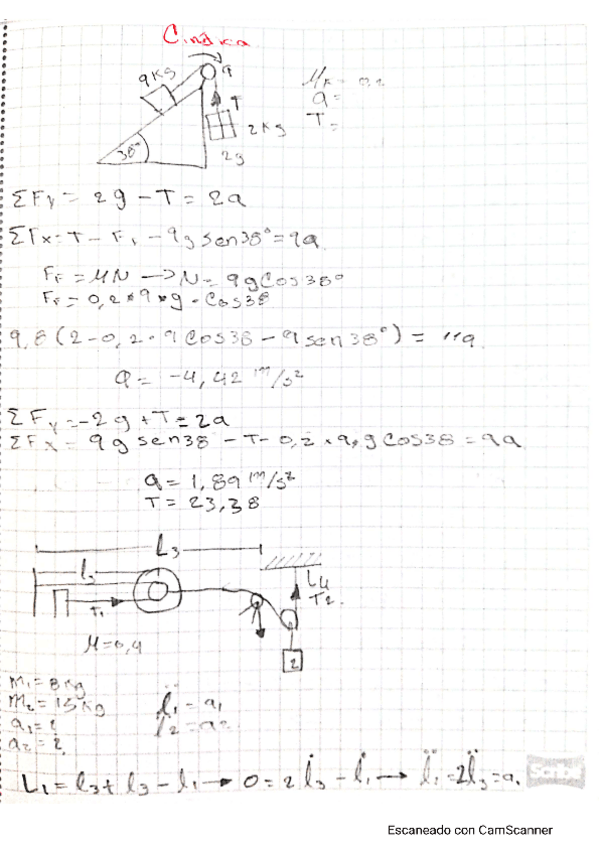 9kg
a
μk = 0,2
a =
T
T =
2kg
38°
2g
ΣFy = 2g - T = 2a
ΣFx = T - Fr - 9g sen38° = 9a
Fr = μN → N = 9g Cos38°
Fr = 0,2 * 9 * g - Cos38
9,8 (2 - 0,2 · 9 Cos38 - 9 sen38°) = 11a
a = -4,42 m/s²
ΣFy = -2g + T = 2a
ΣFx = 9g sen38 - T - 0,2 * 9,g Cos38 = 9a
a = 1,89 m/s²
T = 23,38
L3
L4
T1
T2
μ = 0,4
2
m1 = 8kg
m2 = 15kg
l̈1 = a1
a2 = ?
L1 = l3 + l3 - l1 → 0 = 2 l̇3 - l̇1 → l̈1 = 2l̈3 = a1
Scribd
Escaneado con CamScanner